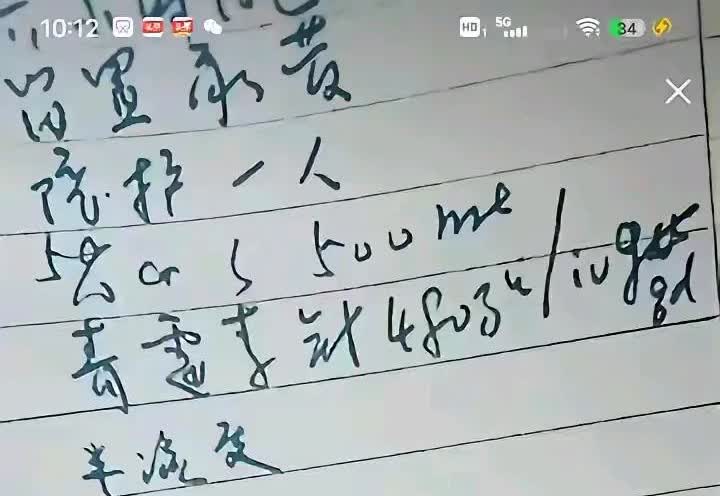 10:12 HD1 5G 34
留置
陪护一人
5% G S 500ml
青霉素针480万u/iv gtt qd
半流